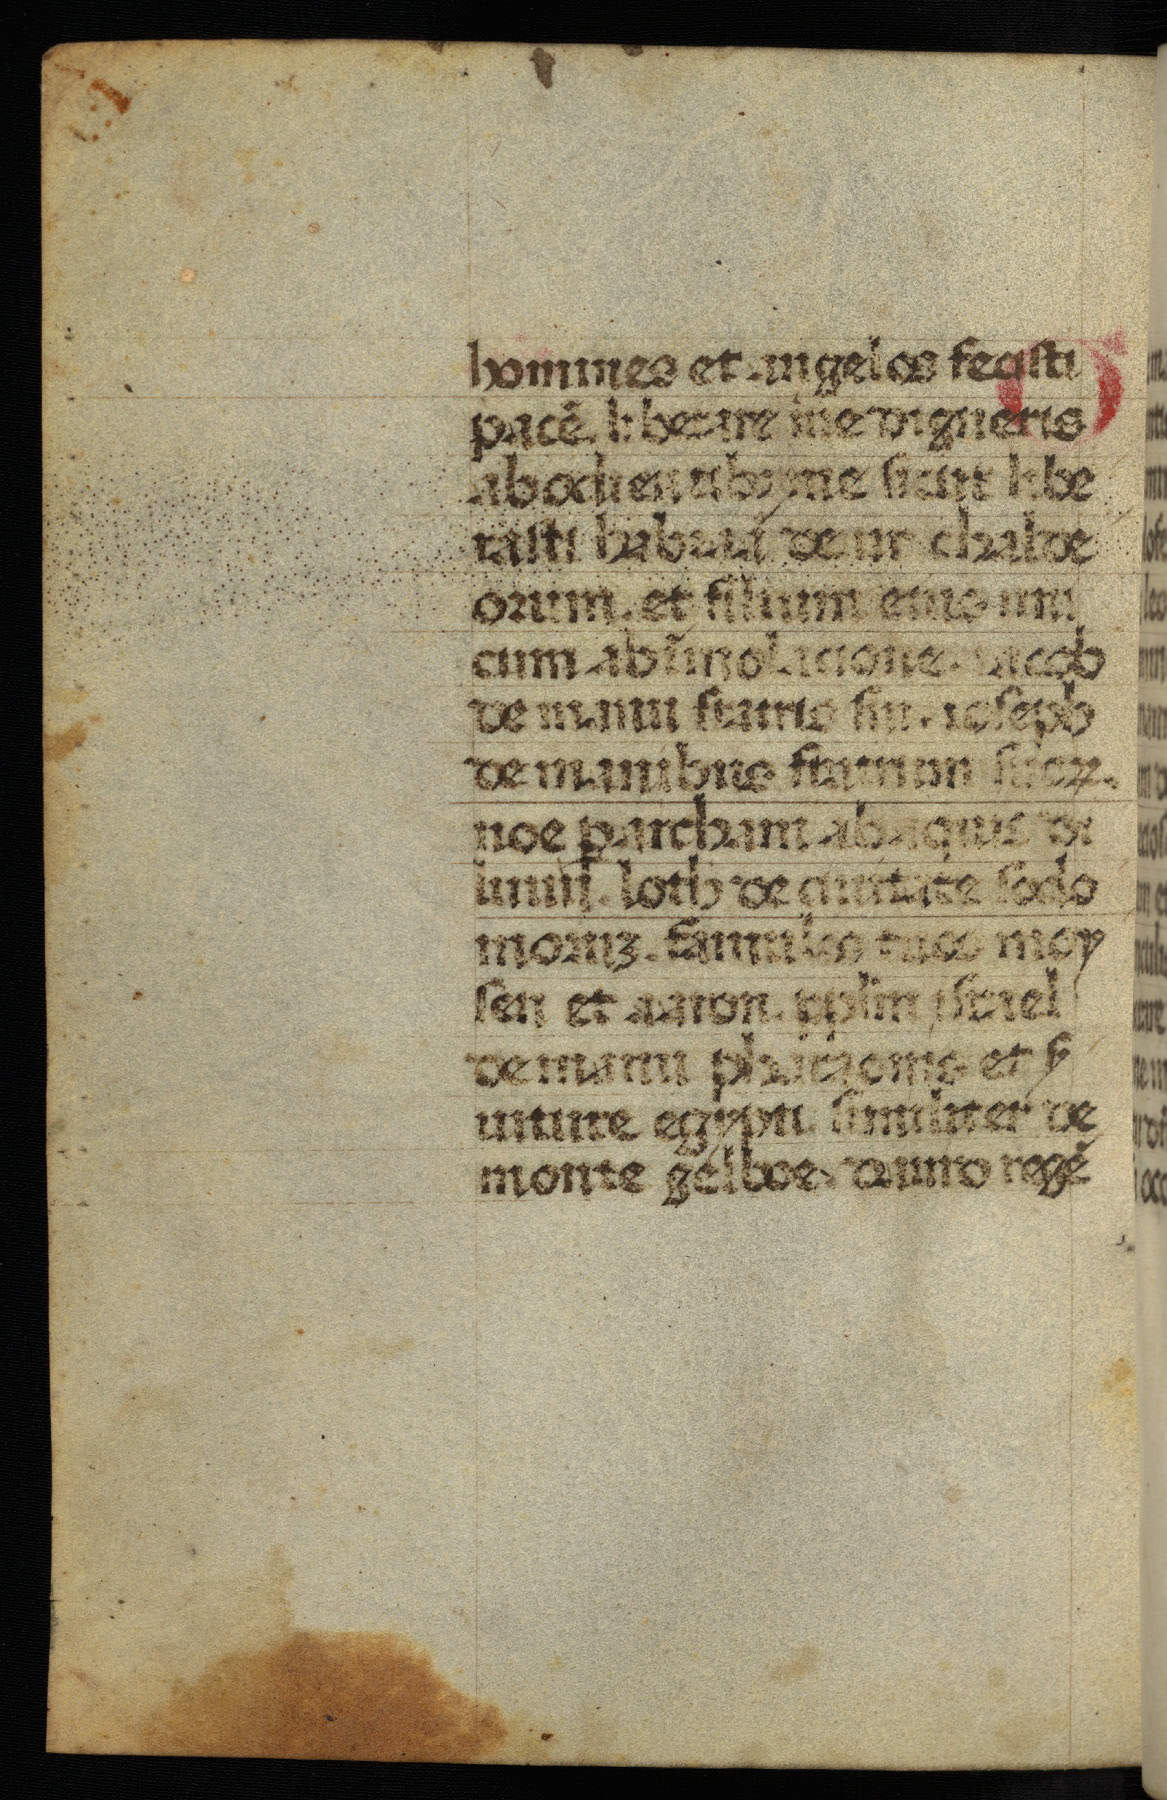 homines et angelos fecisti
pacē. liberare me digneris
ab oc hereubyne sicut libe
rasti habraā de ur chalde
orum. et filium eius uni
cum ab īmolacione. iacob
de manu fratris sui. ioseph
de manibus fratrum suoꝝ.
noe p archam ab aquis di
luuij. loth de ciuitate sodo
morūꝫ. famulos tuos moy
sen et aaron. pplm israel
de manu pharaonis et s
uitute egypti. similiter de
monte gelboe. dauid regē